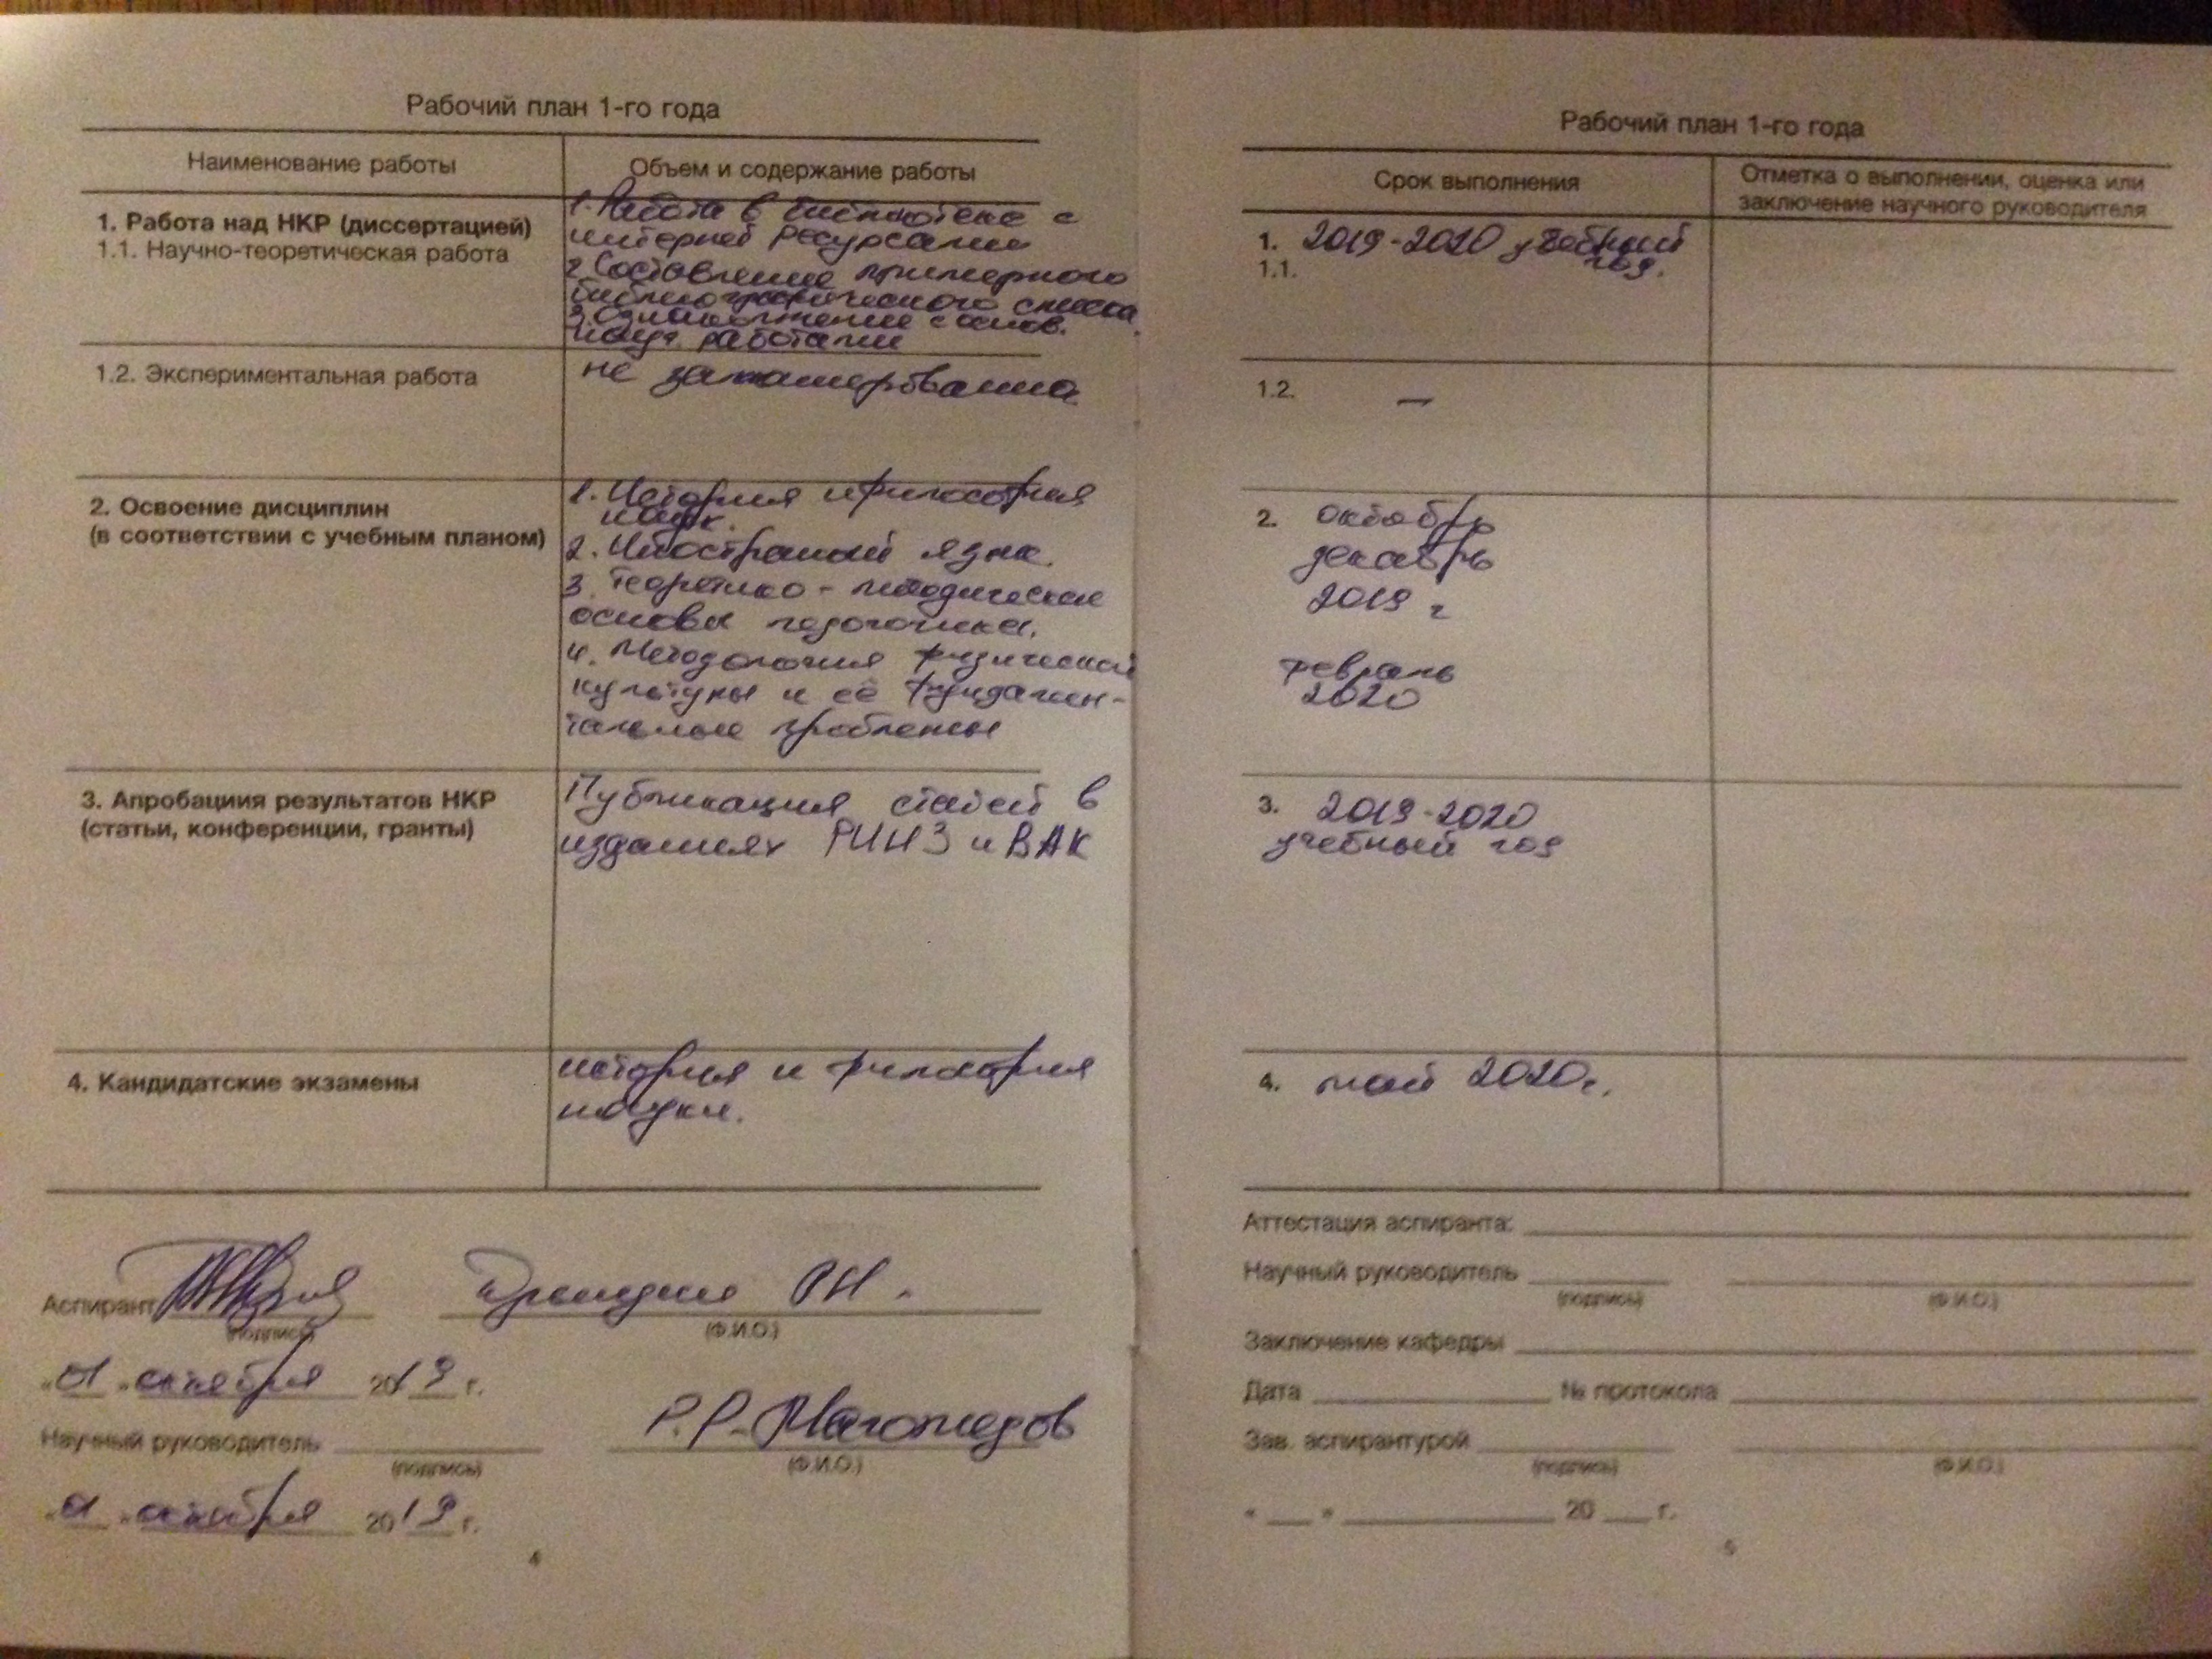 Рабочий план 1-го года
Наименование работы
Объем и содержание работы
1. Работа над НКР (диссертацией)
1.1. Научно-теоретическая работа
1. Работа в библиотеке с
интернет ресурсами
2. Составление примерного
библиографического списка
3. Ознакомление с основ.
науч. работами
1.2. Экспериментальная работа
не запланирована
2. Освоение дисциплин
(в соответствии с учебным планом)
1. История и философия
наук.
2. Иностраный язык.
3. Теоретико - методические
основы педагогики.
4. Методология физической
культуры и её фундамен-
тальные проблемы
3. Апробациия результатов НКР
(статьи, конференции, гранты)
Публикация статей в
изданиях РИНЗ и ВАК
4. Кандидатские экзамены
история и философия
науки.
Аспирант
Р.Н.
(подпись)
(Ф.И.О.)
«01» октября 2019 г.
Р.Р. Магомедов
Научный руководитель
(подпись)
(Ф.И.О.)
«01» октября 2019 г.
4
Рабочий план 1-го года
Срок выполнения
Отметка о выполнении, оценка или
заключение научного руководителя
1. 2019-2020 учебный
1.1. год.
1.2. —
2. октябрь
декабрь
2019 г
февраль
2020
3. 2019-2020
учебный год
4. май 2020г.
Аттестация аспиранта:
Научный руководитель
(подпись) (Ф.И.О.)
Заключение кафедры
Дата № протокола
Зав. аспирантурой
(подпись) (Ф.И.О.)
« » 20 г.
5